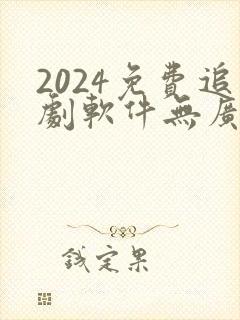 2024免費追
劇軟件無廣
錢定果